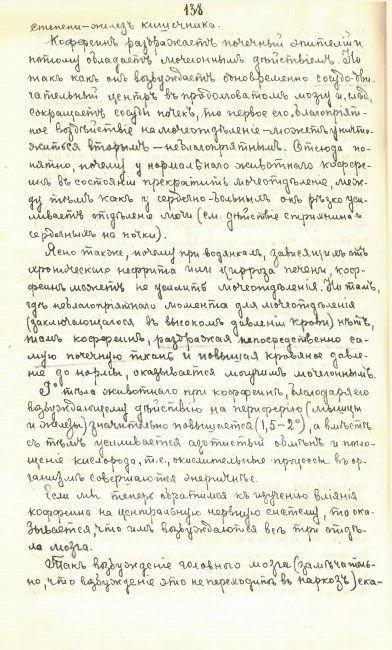 138
степени – железъ кишечника.
Коффеинъ раздражаетъ почечный эпителій и
потому обладаетъ мочегоннымъ дѣйствіемъ. Но
такъ какъ онъ возбуждаетъ одновременно сосудо-дви-
гательный центръ въ продолговатомъ мозгу и, слѣд.
сокращаетъ сосуды почекъ, то первое его благопріят-
ное воздѣйствіе на мочеотдѣленіе – можетъ уничто-
житься вторымъ – неблагопріятнымъ. Отсюда по-
нятно, почему у нормальнаго животнаго коффе-
инъ въ состояніи прекратить мочеотдѣленіе, меж-
ду тѣмъ какъ у сердечно-больныхъ онъ рѣзко уси-
ливаетъ отдѣленіе мочи (см. дѣйствіе
сердечныхъ на почки).
Ясно также, почему при водянкахъ, зависящихъ отъ
хроническаго нефрита или цирроза печени, коф-
феинъ можетъ не усилить мочеотдѣленія. Но тамъ,
гдѣ неблагопріятнаго момента для мочеотдѣленія
(заключающагося въ высокомъ давленіи крови) нѣтъ,
тамъ коффеинъ, раздражая непосредственно са-
мую почечную ткань и повышая кровяное давле-
ніе до нормы, оказывается мощнымъ мочегоннымъ.
t° тѣла животнаго при коффеинѣ, благодаря его
возбуждающему дѣйствію на периферію (мышцы
и железы) значительно повышается (1,5–2°), а вмѣстѣ
съ тѣмъ усиливается азотистый обмѣнъ и погло-
щеніе кислорода, т.е. окислительные процессы въ ор-
ганизмѣ совершаются энергичнѣе.
Если мы теперь обратимся къ изученію вліянія
коффеина на центральную нервную систему, то ока-
зывается, что имъ возбуждаются всѣ три отдѣ-
ла мозга.
Такъ возбужденіе головного мозга (замѣчатель-
но, что возбужденіе это не переходитъ въ наркозъ) ска-